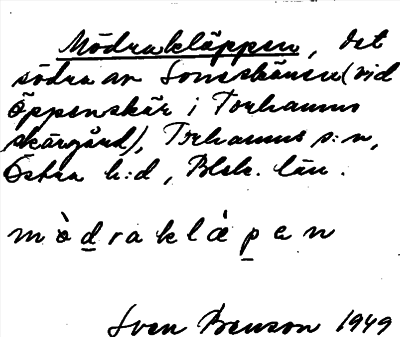 Mödrakläppen, det
södra av Lonsskären (vid
Öppenskär i Torhamns
skärgård), Torhamns s:n,
Östra h:d, Blek. län.
mòdraklápen
Sven Benson 1949